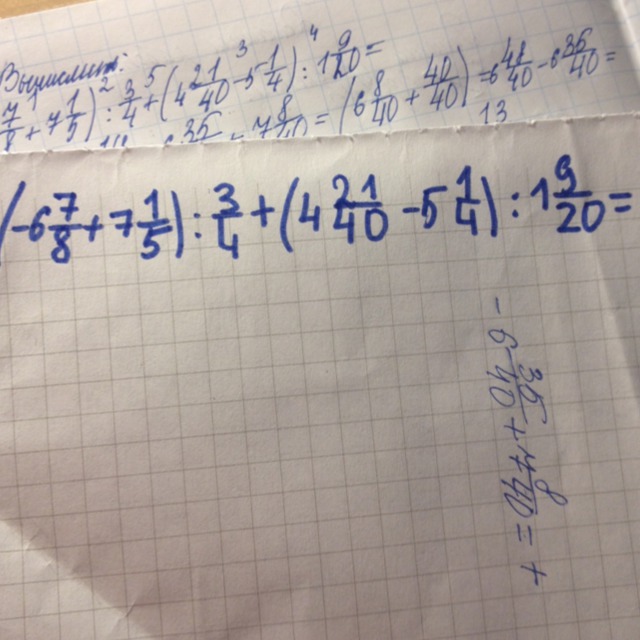 Вычислить:
7/8 + 7 1/5) : 3/4 + (4 21/40 - 5 1/4) : 1 9/20 =
35 7 8/40 = (6 8/40 + 40/40) - 6 36/40 =
13
(-6 7/8 + 7 1/5) : 3/4 + (4 21/40 - 5 1/4) : 1 9/20 =
- 6 35/40 + 7 8/40 = +